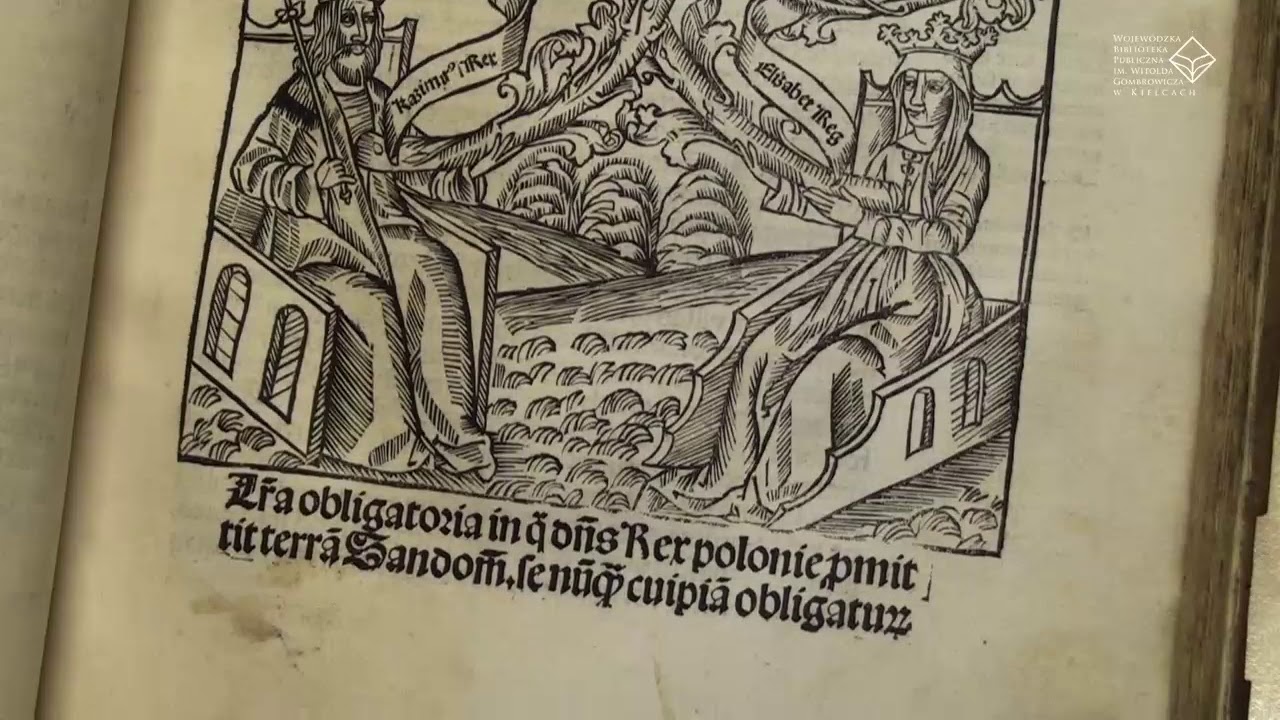 Kazimirꝰ Rex
Elisabet Reg
Lr̃a obligatoria in q̃ dñs Rex polonie ꝓmit
tit terrã Sandom̃. se nũq̃ꝫ cuipiã obligatuꝝ
WOJEWÓDZKA
BIBLIOTEKA
PUBLICZNA
IM. WITOLDA
GOMBROWICZA
W KIELCACH